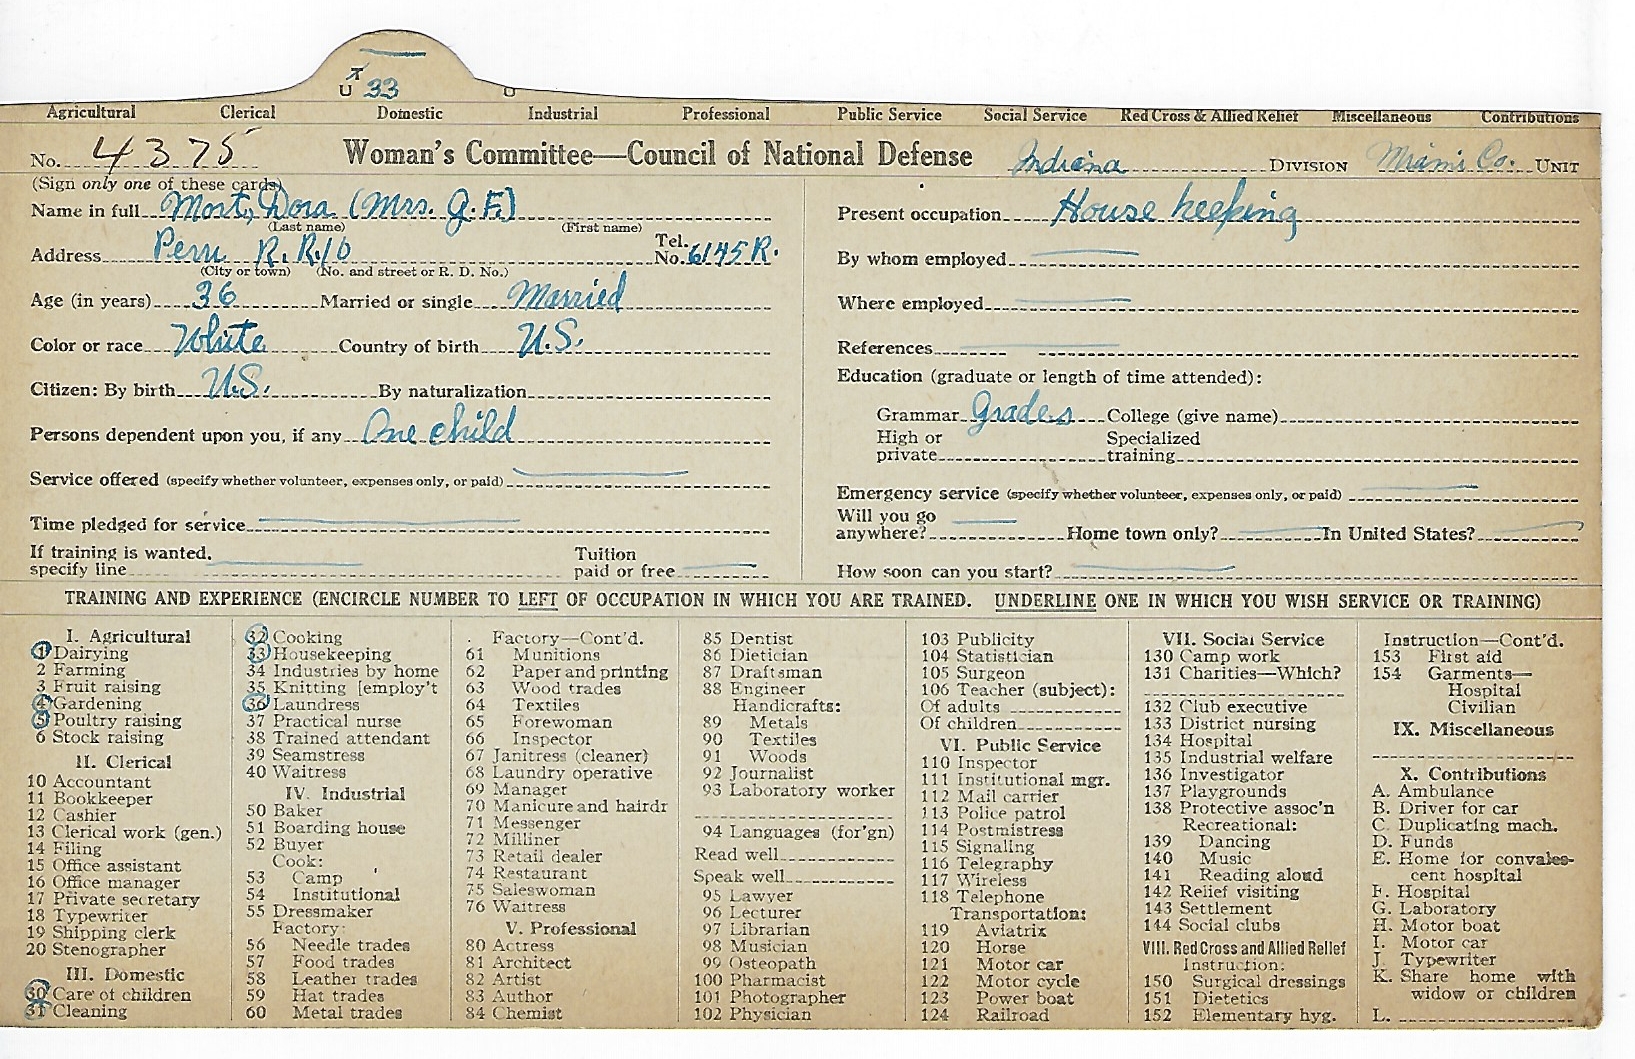 U 33
Agricultural Clerical Domestic Industrial Professional Public Service Social Service Red Cross & Allied Relief Miscellaneous Contributions
No. 4375 Woman's Committee—Council of National Defense Indiana DIVISION Miami Co. UNIT
(Sign only one of these cards)
Name in full Mort, Dora (Mrs. J. F.)
(Last name) (First name)
Address Peru R. R. 10 Tel. No. 6145 R.
(City or town) (No. and street or R. D. No.)
Age (in years) 36 Married or single Married
Color or race White Country of birth U.S.
Citizen: By birth U.S. By naturalization
Persons dependent upon you, if any One child
Service offered (specify whether volunteer, expenses only, or paid)
Time pledged for service
If training is wanted. Tuition
specify line paid or free
Present occupation House keeping
By whom employed
Where employed
References
Education (graduate or length of time attended):
Grammar Grades College (give name)
High or Specialized
private training
Emergency service (specify whether volunteer, expenses only, or paid)
Will you go
anywhere? Home town only? In United States?
How soon can you start?
TRAINING AND EXPERIENCE (ENCIRCLE NUMBER TO LEFT OF OCCUPATION IN WHICH YOU ARE TRAINED. UNDERLINE ONE IN WHICH YOU WISH SERVICE OR TRAINING)
I. Agricultural
1 Dairying
2 Farming
3 Fruit raising
4 Gardening
5 Poultry raising
6 Stock raising
II. Clerical
10 Accountant
11 Bookkeeper
12 Cashier
13 Clerical work (gen.)
14 Filing
15 Office assistant
16 Office manager
17 Private secretary
18 Typewriter
19 Shipping clerk
20 Stenographer
III. Domestic
30 Care of children
31 Cleaning
32 Cooking
33 Housekeeping
34 Industries by home
35 Knitting [employ't
36 Laundress
37 Practical nurse
38 Trained attendant
39 Seamstress
40 Waitress
IV. Industrial
50 Baker
51 Boarding house
52 Buyer
Cook:
53 Camp
54 Institutional
55 Dressmaker
Factory:
56 Needle trades
57 Food trades
58 Leather trades
59 Hat trades
60 Metal trades
Factory—Cont'd.
61 Munitions
62 Paper and printing
63 Wood trades
64 Textiles
65 Forewoman
66 Inspector
67 Janitress (cleaner)
68 Laundry operative
69 Manager
70 Manicure and hairdr
71 Messenger
72 Milliner
73 Retail dealer
74 Restaurant
75 Saleswoman
76 Waitress
V. Professional
80 Actress
81 Architect
82 Artist
83 Author
84 Chemist
85 Dentist
86 Dietician
87 Draftsman
88 Engineer
Handicrafts:
89 Metals
90 Textiles
91 Woods
92 Journalist
93 Laboratory worker
94 Languages (for'gn)
Read well
Speak well
95 Lawyer
96 Lecturer
97 Librarian
98 Musician
99 Osteopath
100 Pharmacist
101 Photographer
102 Physician
103 Publicity
104 Statistician
105 Surgeon
106 Teacher (subject):
Of adults
Of children
VI. Public Service
110 Inspector
111 Institutional mgr.
112 Mail carrier
113 Police patrol
114 Postmistress
115 Signaling
116 Telegraphy
117 Wireless
118 Telephone
Transportation:
119 Aviatrix
120 Horse
121 Motor car
122 Motor cycle
123 Power boat
124 Railroad
VII. Social Service
130 Camp work
131 Charities—Which?
132 Club executive
133 District nursing
134 Hospital
135 Industrial welfare
136 Investigator
137 Playgrounds
138 Protective assoc'n
Recreational:
139 Dancing
140 Music
141 Reading aloud
142 Relief visiting
143 Settlement
144 Social clubs
VIII. Red Cross and Allied Relief
Instruction:
150 Surgical dressings
151 Dietetics
152 Elementary hyg.
Instruction—Cont'd.
153 First aid
154 Garments—
Hospital
Civilian
IX. Miscellaneous
X. Contributions
A. Ambulance
B. Driver for car
C. Duplicating mach.
D. Funds
E. Home for convales-
cent hospital
F. Hospital
G. Laboratory
H. Motor boat
I. Motor car
J. Typewriter
K. Share home with
widow or children
L.